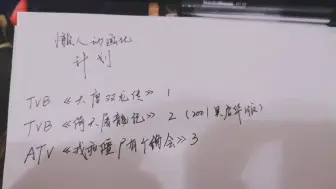 懒人动画化
计划
TVB《大唐双龙传》1
TVB《倚天屠龙记》2（2001吴启华版）
ATV《我和僵尸有个约会》3